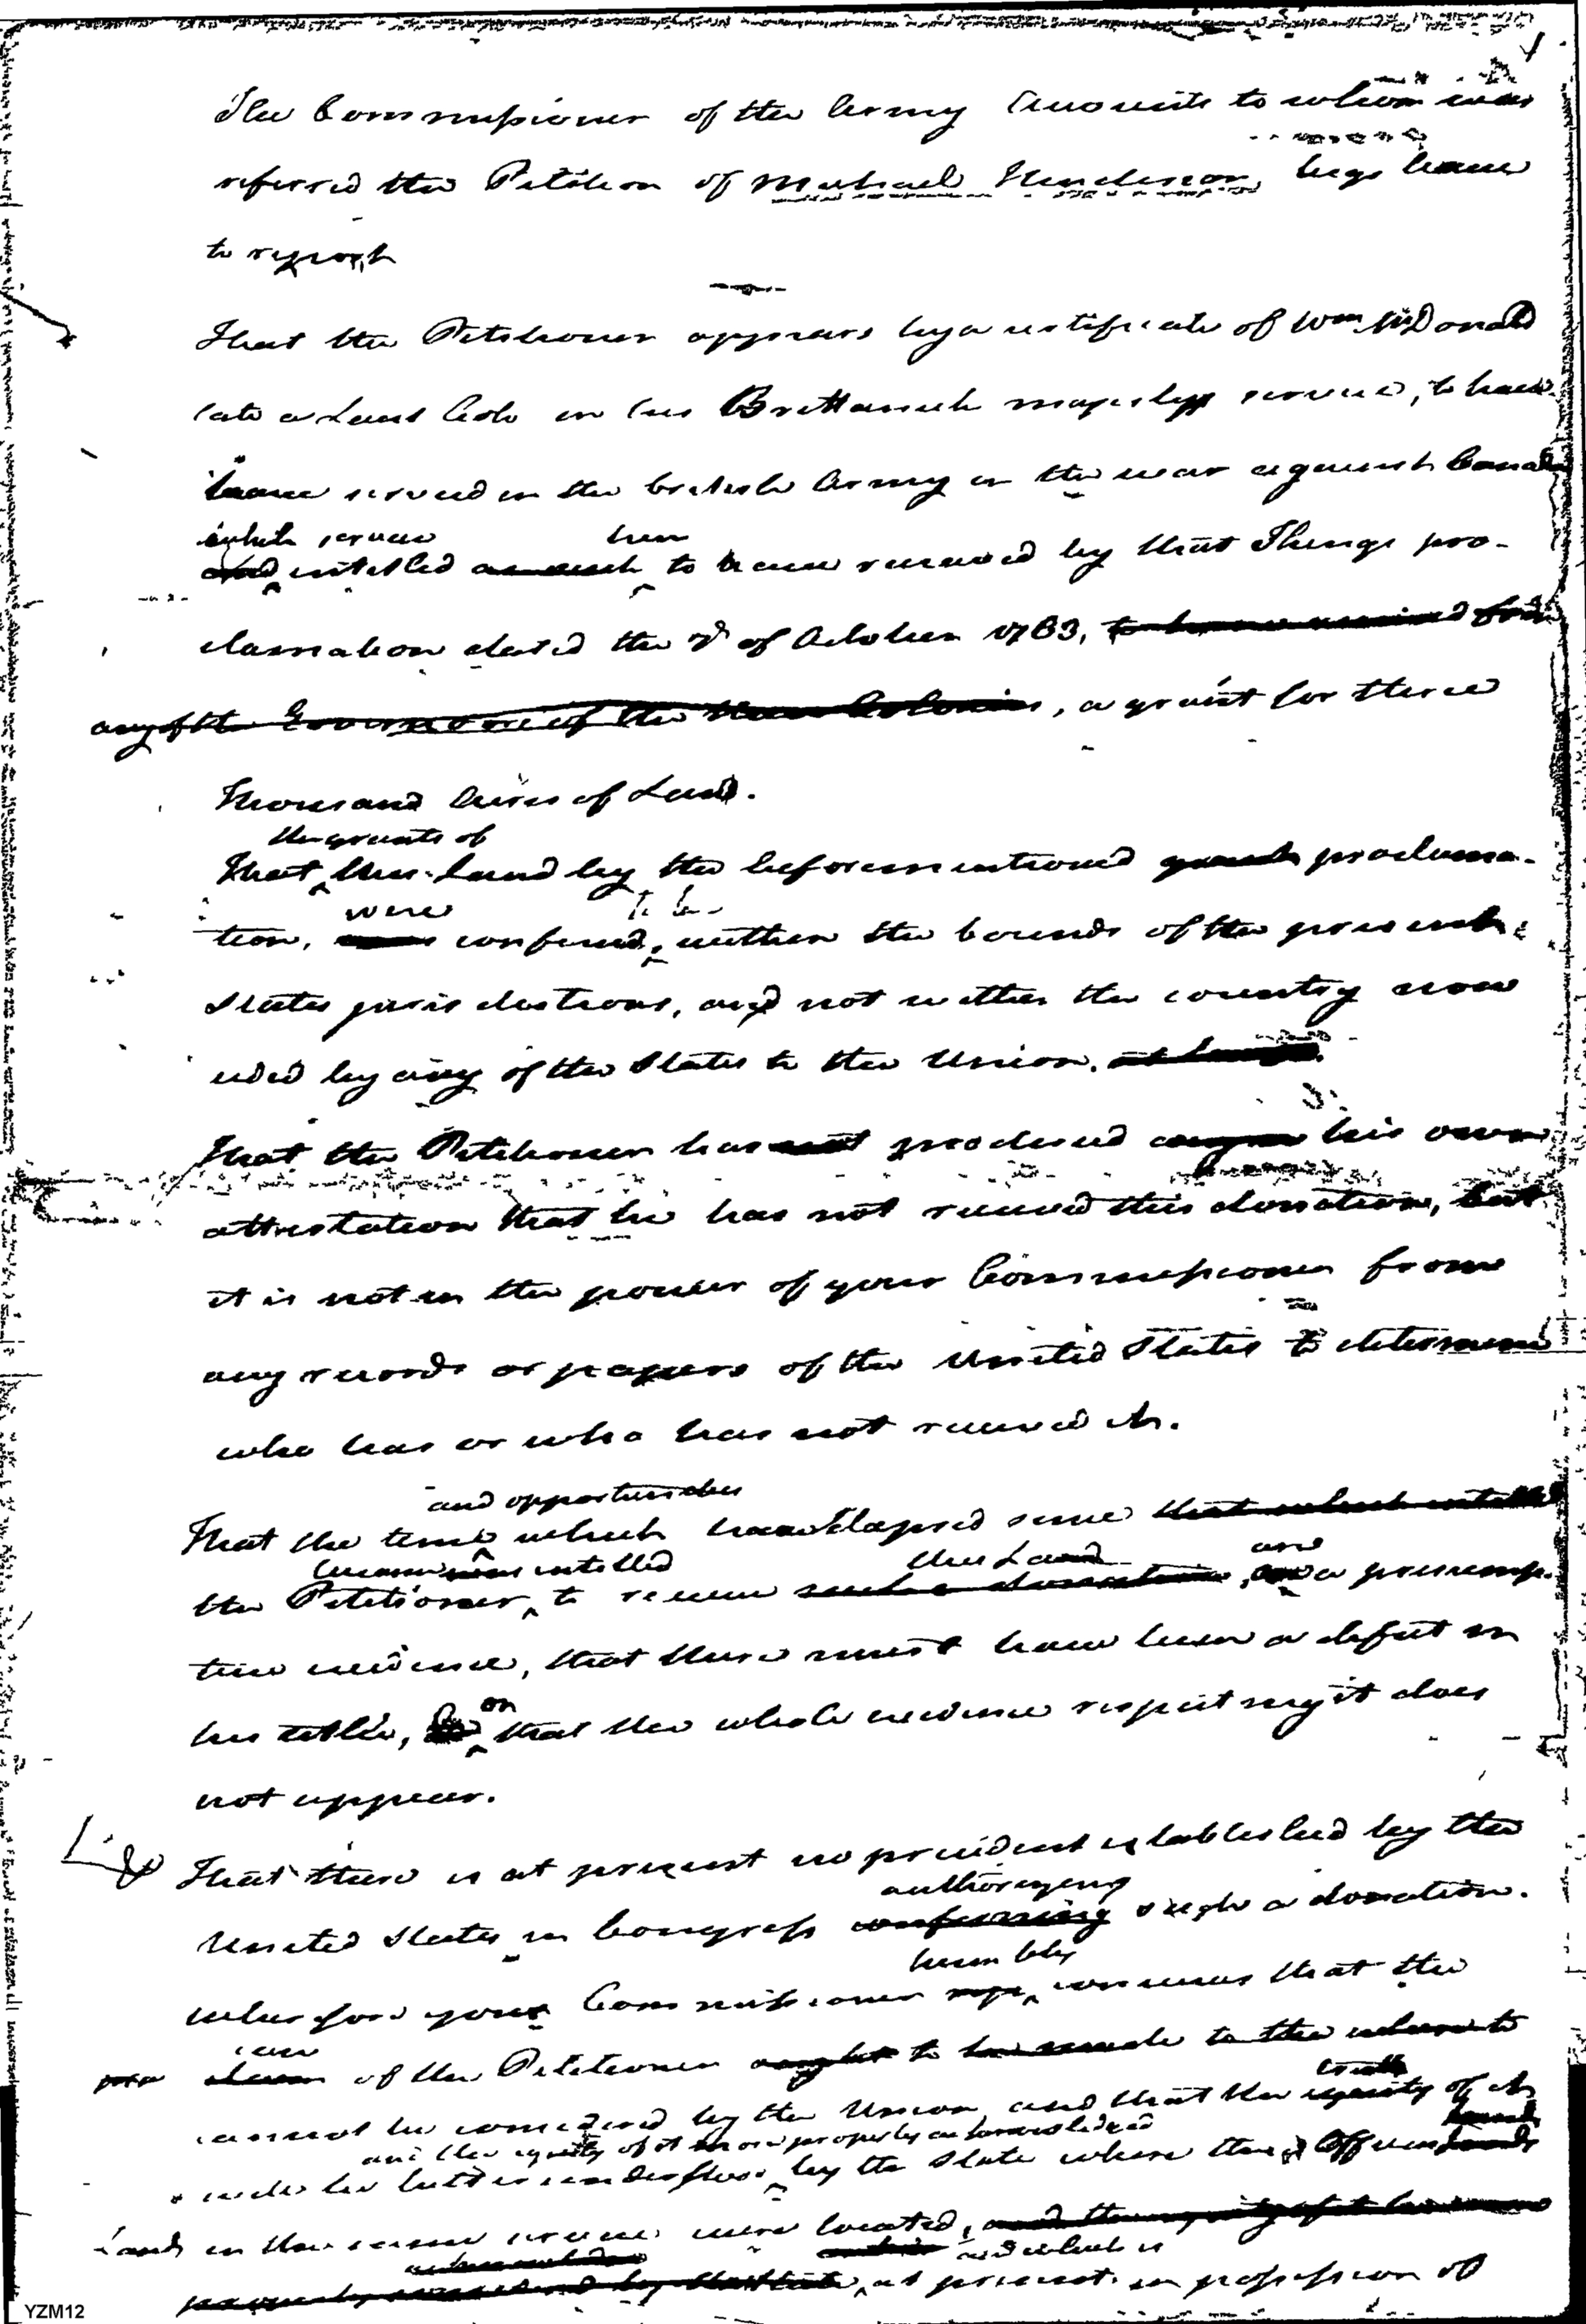 The Commissioner of the Army Accounts to whom was
referred the Petition of Michael Henderson, begs leave
to report
That the Petitioner appears by a certificate of Wm McDonald
late a Lieut Colo in his Brittanick majestys service, to have
have served in the british Army in the war against Canada
which service been
and entitled as such to have received by that Kings pro-
clamation dated the 7th of October 1763, to have received from
any of the Governors of the Colonies, a grant for three
thousand Acres of Land.
the grants of
That this Land by the beforementioned grant proclama-
were to be
tion, was confined, within the bounds of the present
States jurisdictions, and not within the country now
ceded by any of the States to the Union.
That the Petitioner has not produced any his own
attestation that he has not received this donation, but
it is not in the power of your Commissioner from
any records or papers of the United States to determine
who has or who has not received it.
and opportunities
That the time which have elapsed since that which entitled
became was entitled this Land are
the Petitioner, to receive such a donation, a presump-
tive evidence, that there must have been a defect in
or
his title, that the whole evidence respecting it does
not appear.
That there is at present no precident established by the
authorizing
United States in Congress confirming such a donation.
humbly
wherefore your Commissioner conceives that the
case
claim of the Petitioner ought to be made to the
truth
cannot be considered by the Union and that the equity of it
and the equity of it more properly acknowledged
will be better understood by the State where these Officers
Lands in the same service were located, and the equity of it
and which is
at present in possession of
YZM12